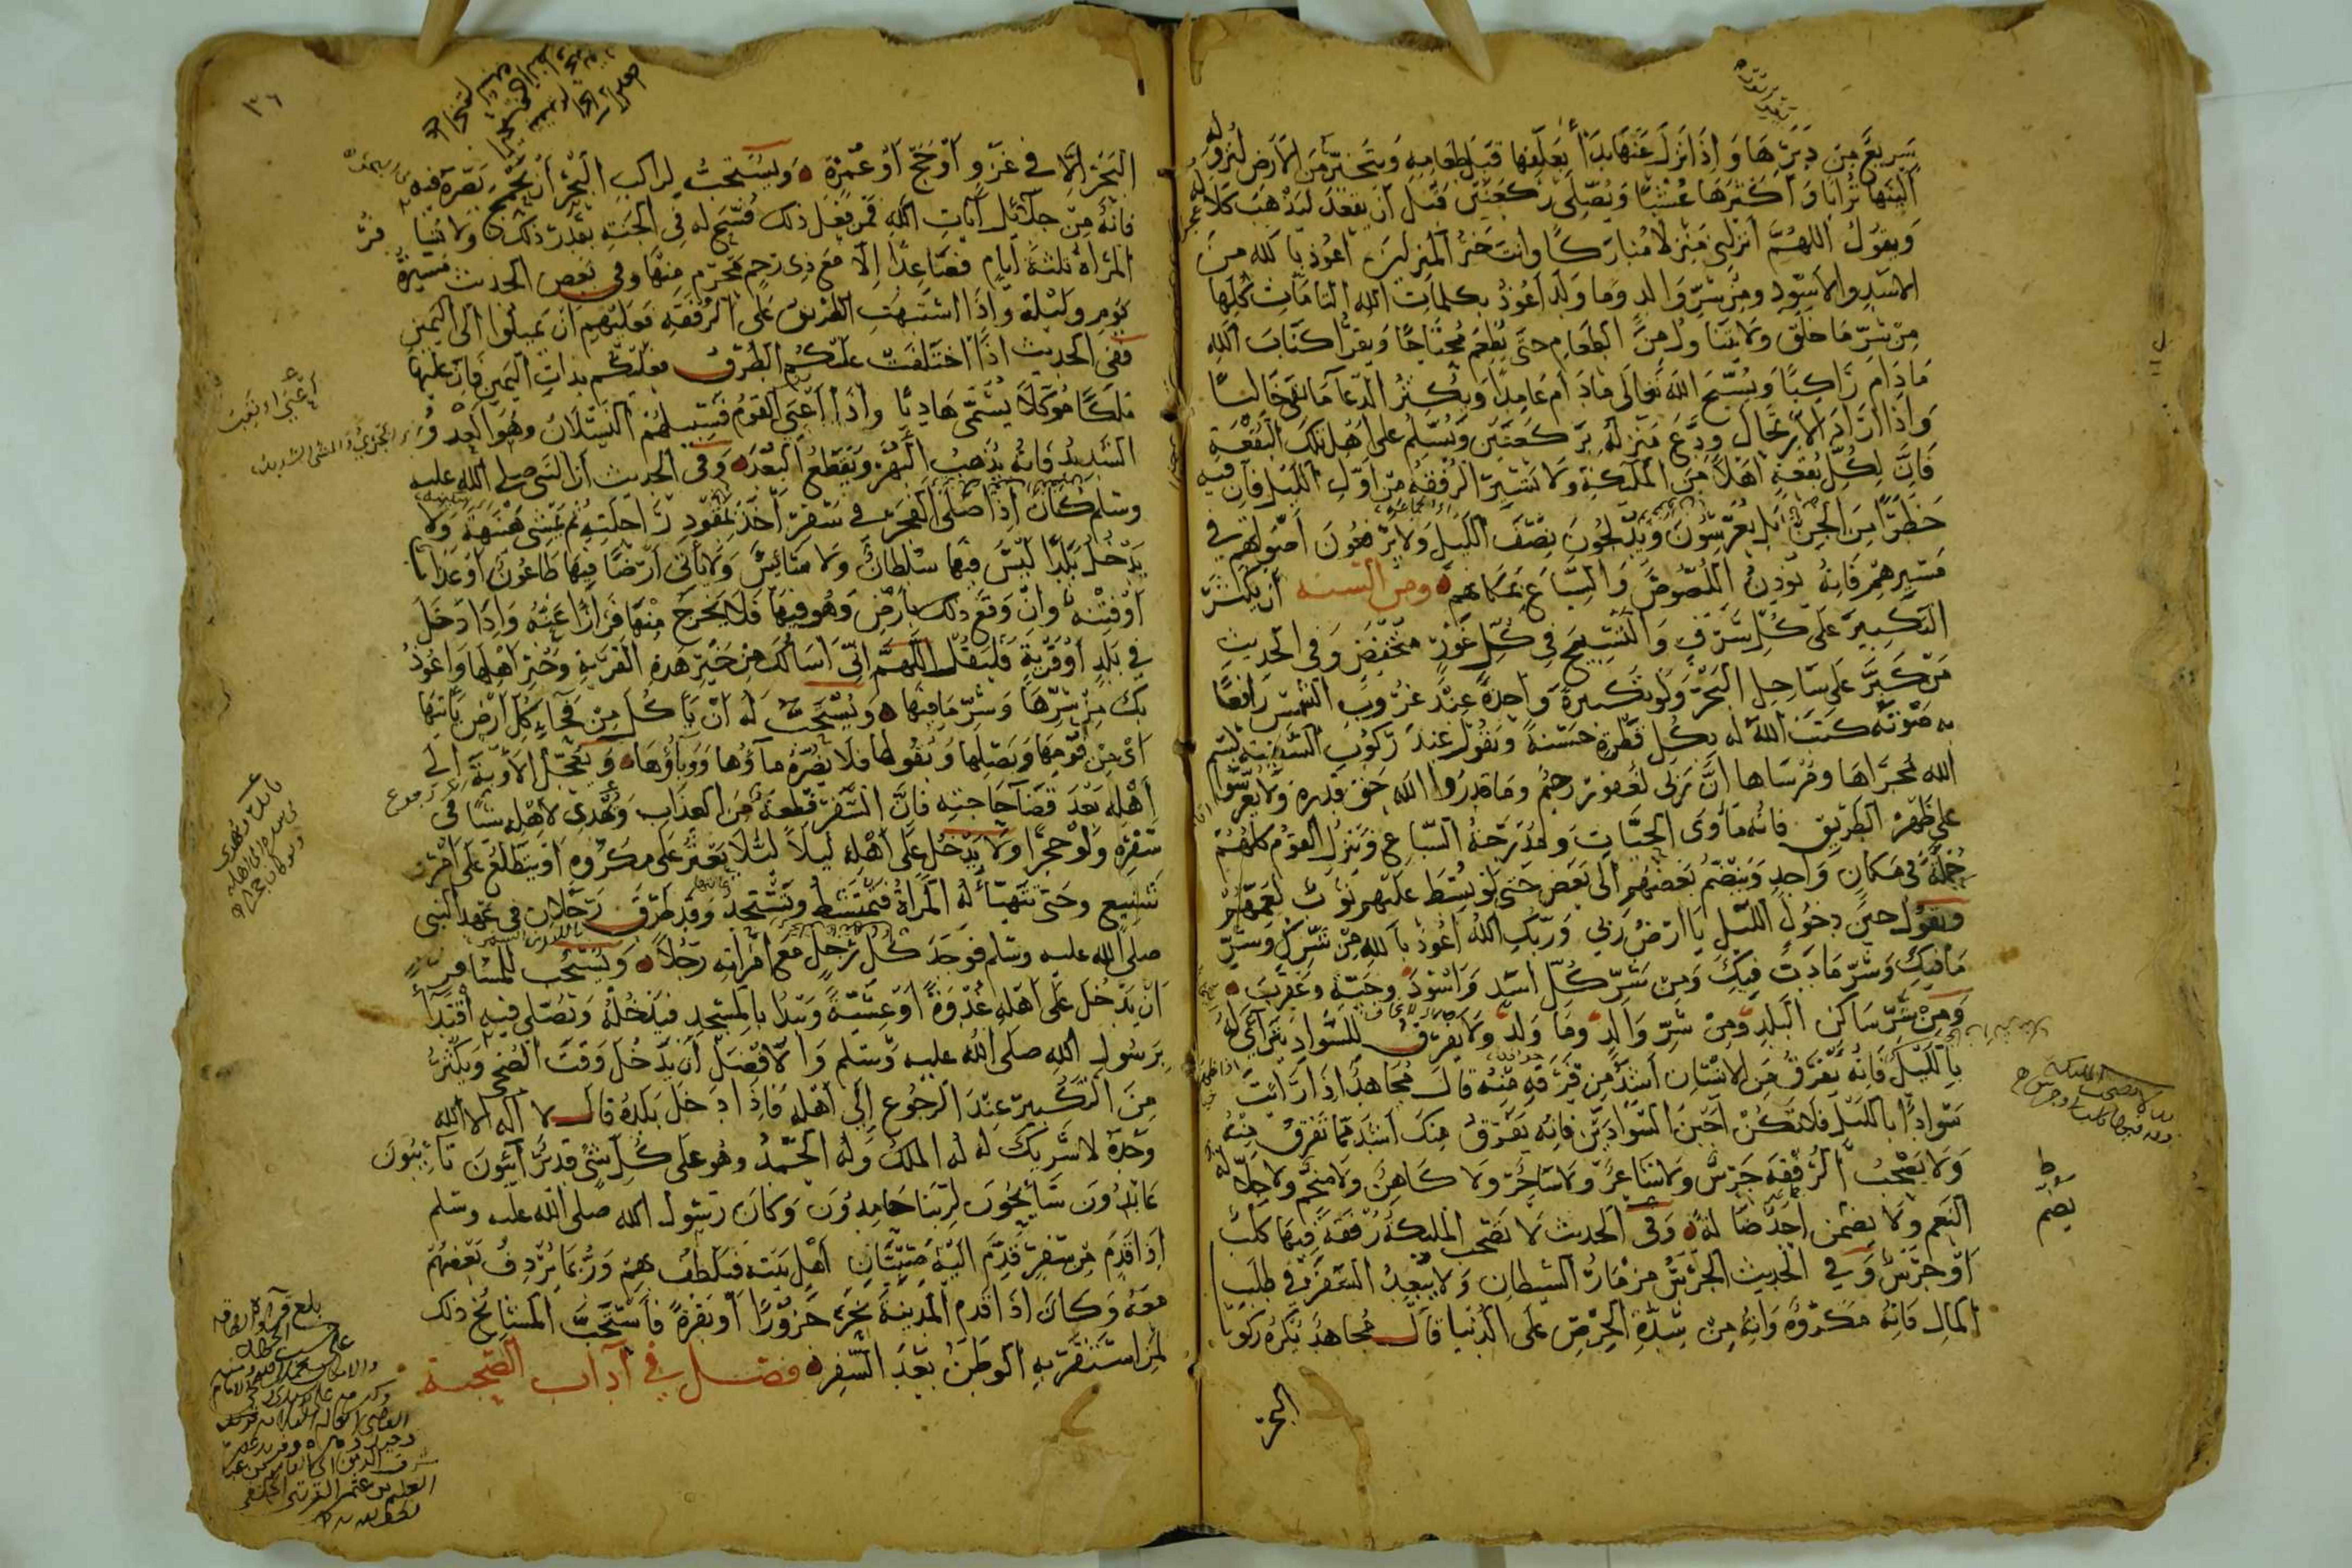 سريع من دبرها واذا نزل عنها بدأ بعلفها قبل طعامه ويتخير من الارض لنزوله
الينها ترابا واكثرها عشبا ويصلى ركعتين قبل ان يقعد
ويقول اللهم انزلنى منزلا مباركا وانت خير المنزلين اعوذ بالله من
الاسد والاسود ومن شر والد وما ولد اعوذ بكلمات الله التامات كلها
من شر ما خلق ولا يتناول من الطعام حتى يطعم محتاجا ويقرأ كتاب الله
ما دام راكبا ويسبح الله تعالى ما دام عاملا ويكثر الدعآ ما بقى خاليا
واذا اراد الارتحال ودع منزله بركعتين ويسلم على اهل تلك البقعة
فان لكل بقعة اهلا من الملئكة ولا تسير الرفقة من اول الليل فان فيه
خطرا من الجن بل يعرسون ويدلجون نصف الليل ولا يرفعون اصواتهم في
مسيرهم فانه يؤذن اللصوص والسباع بمكانهم ومن السنه ان يكثر
التكبير على كل شرف والتسبيح في كل غور منخفض وفي الحديث
من كبر على ساحل البحر ولو تكبيرة واحدة عند غروب الشمس رافعا
به صوته كتب الله له بكل قطرة حسنة ويقول عند ركوب السفينة بسم
الله مجراها ومرساها ان ربى لغفور رحيم وما قدروا الله حق قدره ولا يعرسوا
على ظهر الطريق فانه مأوى الحيات ومدرجة السباع وينزل القوم كلهم
جملة في مكان واحد وينضم بعضهم الى بعض حتى لو بسط عليهم ثوب لعمهم
ويقول حين دخول الليل يا ارض ربى وربك الله اعوذ بالله من شرك وشر
ما فيك وشر ما دب فيك ومن شر كل اسد واسود وحية وعقرب
ومن شر ساكن البلد ومن شر والد وما ولد ولا يفرق للسواد يتراأى له
بالليل فانه يفرق من الانسان اشد من فرقه منه قال مجاهد اذا رأيت
سوادا بالليل فلا تكن اجبن السوادين فانه يفرق منك اشد مما تفرق منه
ولا يصحب الرفقة جرس ولا شاعر ولا ساحر ولا كاهن ولا منجم ولا جلالة
النعم ولا يضمن احد ضالة وفى الحديث لا تصحب الملئكة رفقة فيها كلب
او جرس وفي الحديث الجرس مزمار الشيطان ولا يبعد السفر في طلب
المال فانه مكروه وانه من شدة الحرص على الدنيا قال مجاهد يكره ركوب
البحر
٣٦
البحر الا في غزو او حج او عمرة ويستحب لراكب البحر ان يجمع بصره فيه
فانه من جلائل آيات الله فمن فعل ذلك فسح له فى الجنة بقدر ذلك ولا تسافر
المرأة ثلثة ايام فصاعدا الا مع ذى رحم محرم منها وفى بعض الحديث مسيرة
يوم وليلة واذا اشتبهت الطريق على الرفقة فعليهم ان يميلوا الى اليمين
ففى الحديث اذا اختلفت عليكم الطرق فعليكم بذات اليمين فان عليها
ملكا موكلا يسمى هاديا واذا اعيى القوم فسبيلهم النسلان وهو العدو
الشديد فانه يذهب البهر ويقطع البعد وفى الحديث ان النبى صلى الله عليه
وسلم كان اذا صلى الفجر في سفر اخذ بمقود راحلته ثم يمشى هنيهة ولا
يدخل بلدا ليس فيها سلطان ولا سائس ولا يأتى ارضا فيها طاعون او عذاب
او فتنة وان وقع ذلك بارض وهو فيها فلا يخرج منها فرارا عنه واذا دخل
في بلد او قرية فليقل اللهم انى اسألك من خير هذه القرية وخير اهلها واعوذ
بك من شرها وشر ما فيها ويستحب له ان يأكل من فحاء كل ارض يأتيها
اى من ثومها وبصلها وبقولها فلا يضره مآؤها ووباؤها ويعجل الأوبة الى
اهله بعد قضآ حاجته فان السفر قطعة من العذاب ويهدى لاهله شيا فى
سفره ولو حجرا ولا يدخل على اهله ليلا لئلا يعثر على مكروه او يتطلع على امر
شنيع وحتى تتهيأ له المرأة فتمتشط وتستحد وقد طرق رجلان في عهد النبى
صلى الله عليه وسلم فوجد كل رجل مع امرأته رجلا ويستحب للمسافر
ان يدخل على اهله غدوة او عشية ويبدأ بالمسجد فيدخله ويصلي فيه اقتدآ
برسول الله صلى الله عليه وسلم والافضل ان يدخل وقت الضحى ويكثر
من التكبير عند الرجوع الى اهله فاذا دخل بلده قال لا اله الا الله
وحده لا شريك له له الملك وله الحمد وهو على كل شئ قدير آئبون تائبون
عابدون سائحون لربنا حامدون وكان رسول الله صلى الله عليه وسلم
اذا قدم من سفر قدم اليه صبيان اهل بيته فيلطف بهم وربما يردف بعضهم
معه وكان اذا قدم المدينة نحر جزورا او بقرة فاستحب المشائخ ذلك
لمن استقر به الوطن بعد السفر فصل في آداب الصحبة